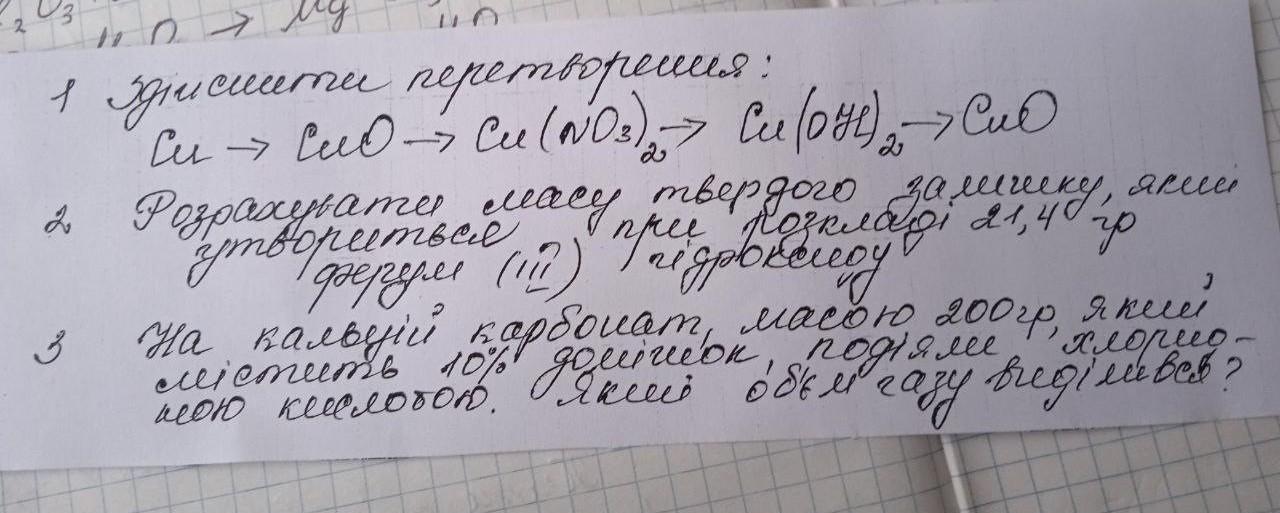 2 O3
→ Mg
1 Здійснити перетворення:
Cu → CuO → Cu(NO3)2 → Cu(OH)2 → CuO
2 Розрахувати масу твердого залишку, який
утвориться при розкладі 21,4 гр
ферум (III) гідроксиду
3 На кальцій карбонат, масою 200гр, який
містить 10% домішок, подіяли хлорно-
ною кислотою. Який об'єм газу виділився?